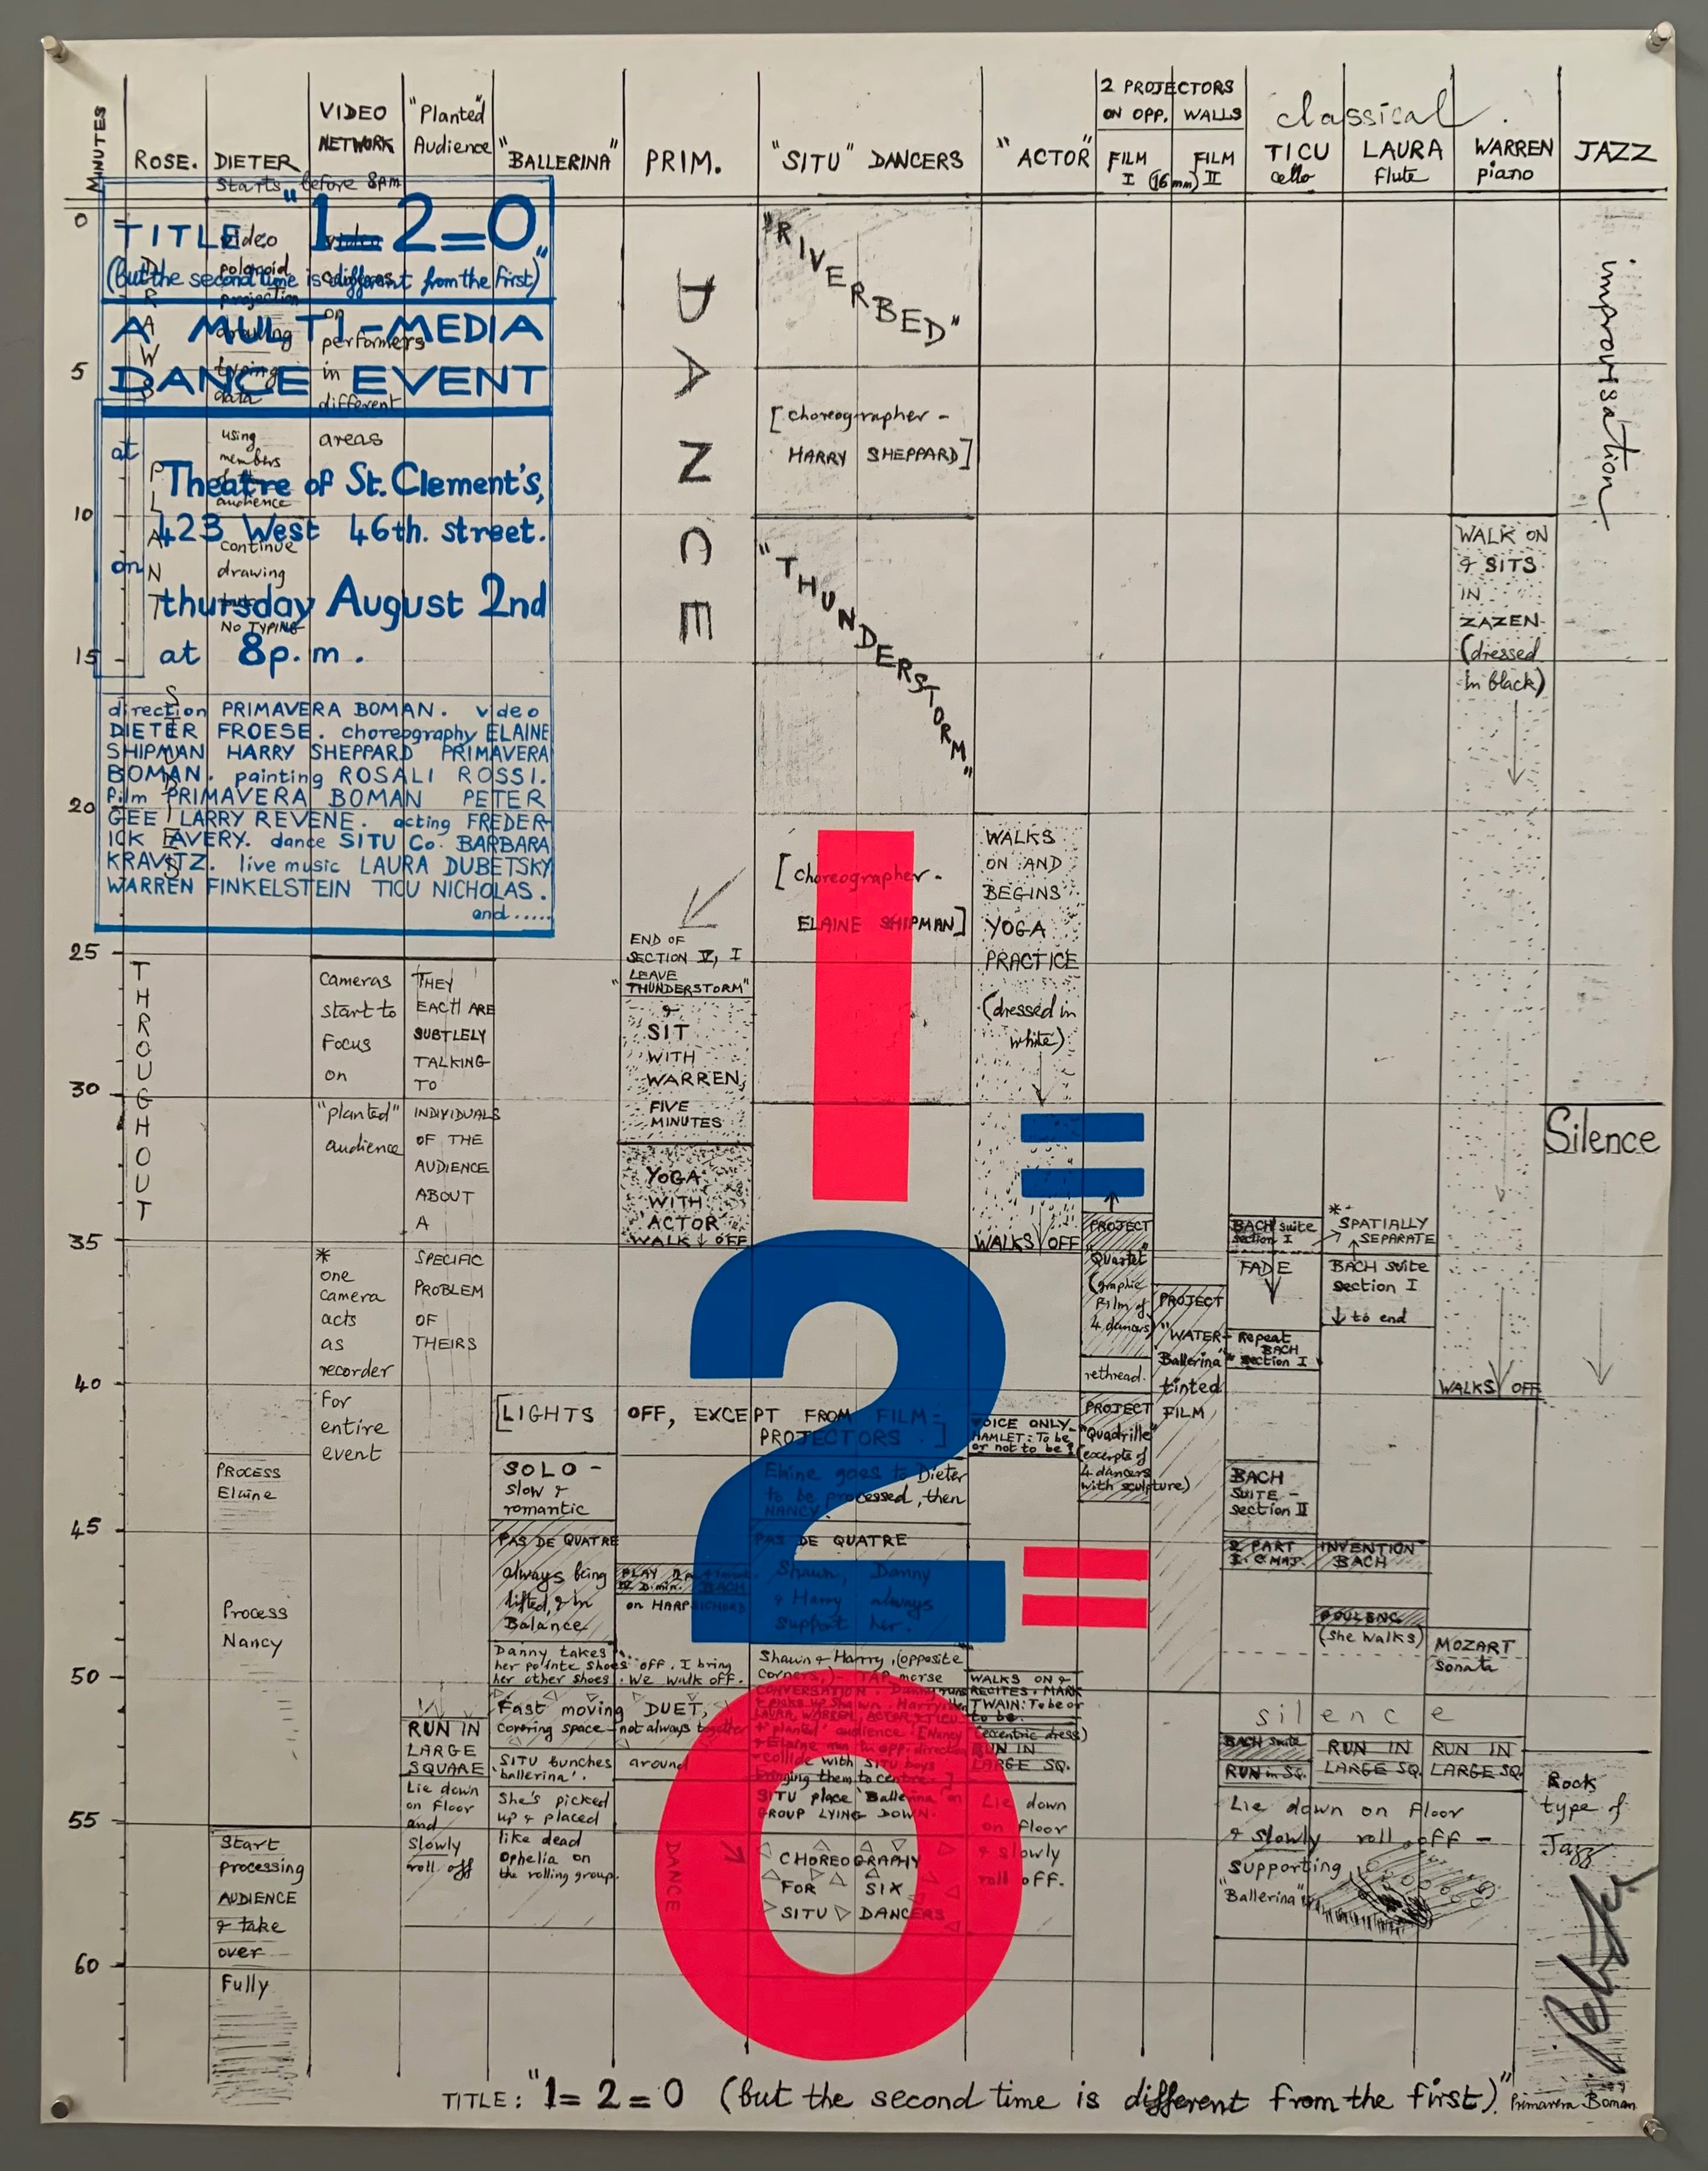 MINUTES
ROSE.
DIETER
starts before 8pm
VIDEO
NETWORK
"Planted"
Audience
"BALLERINA"
PRIM.
"SITU" DANCERS
"ACTOR"
2 PROJECTORS
ON OPP. WALLS
FILM I (16 mm) FILM II
classical.
TICU
cello
LAURA
flute
WARREN
piano
JAZZ
0
5
10
15
20
25
30
35
40
45
50
55
60
TITLE "1 2=0"
(but the second time is different from the first)"
A MULTI-MEDIA
DANCE EVENT
at
Theatre of St. Clement's,
423 West 46th. street.
on
thursday August 2nd
at 8p.m.
direction PRIMAVERA BOMAN. video
DIETER FROESE. choreography ELAINE
SHIPMAN HARRY SHEPPARD PRIMAVERA
BOMAN. painting ROSALI ROSSI.
film PRIMAVERA BOMAN PETER
GEE LARRY REVENE. acting FREDER-
ICK EAVERY. dance SITU Co. BARBARA
KRAVITZ. live music LAURA DUBETSKY
WARREN FINKELSTEIN TICU NICHOLAS.
and.....
THROUGHOUT
video
polaroid
projection
drawing
typing
data
using
members
audience
continue
drawing
NO TYPING
PROCESS
Elaine
Process
Nancy
Start
processing
AUDIENCE
& take
over
Fully
video
cameras
on
performers
in
different
areas
Cameras
start to
Focus
on
"planted"
audience
*
one
camera
acts
as
recorder
for
entire
event
THEY
EACH ARE
SUBTLELY
TALKING
TO
INDIVIDUALS
OF THE
AUDIENCE
ABOUT
A
SPECIFIC
PROBLEM
OF
THEIRS
RUN IN
LARGE
SQUARE
Lie down
on floor
and
slowly
roll off
[LIGHTS OFF, EXCEPT FROM FILM-
PROJECTORS.]
SOLO -
slow &
romantic
PAS DE QUATRE
always being
lifted, & in
Balance
Danny takes
her pointe shoes off. I bring
her other shoes. We walk off.
Fast moving DUET,
covering space - not always together
SITU bunches around
'ballerina'.
She's picked
up & placed
like dead
Ophelia on
the rolling group.
DANCE
END OF
SECTION IV, I
LEAVE
"THUNDERSTORM"
&
SIT
WITH
WARREN,
FIVE
MINUTES
YOGA
WITH
ACTOR
WALK OFF
on HARPSICHORD
DANCE
"RIVERBED"
[choreographer -
HARRY SHEPPARD]
"THUNDERSTORM"
[choreographer -
ELAINE SHIPMAN]
1
=
2
=
0
Elaine goes to Dieter
to be processed, then
NANCY.
PAS DE QUATRE
Shawn, Danny
& Harry always
support her.
Shawn & Harry, (opposite
corners,) - TAP morse
CONVERSATION. Danny runs
& picks up Shawn. Harry then
LAURA, WARREN, ACTOR & TICU
& 'planted' audience [Nancy
& Elaine run in opp. direction
- collide with SITU boys
bringing them to centre.]
SITU place 'Ballerina' on
GROUP LYING DOWN.
CHOREOGRAPHY
FOR SIX
SITU DANCERS
WALKS
ON AND
BEGINS
YOGA
PRACTICE
(dressed in
white)
WALKS OFF
VOICE ONLY -
HAMLET: To be
or not to be?
WALKS ON &
RECITES. MARK
TWAIN: To be or
to be.
(eccentric dress)
RUN IN
LARGE SQ.
Lie down
on floor
& slowly
roll off.
PROJECT
"Quartet"
(graphic
film of
4 dancers)
rethread.
PROJECT
"Quadrille"
(excerpts of
4 dancers
with sculpture)
PROJECT
"WATER-
Ballerina"
tinted
FILM
BACH suite
section I
FADE
Repeat
BACH
section I
BACH
SUITE -
section II
2 PART INVENTION
BACH
* SPATIALLY
SEPARATE
BACH suite
section I
to end
POULENC
(she walks)
MOZART
sonata
silence
BACH suite
RUN in SQ.
RUN IN
LARGE SQ.
RUN IN
LARGE SQ.
Lie down on floor
& slowly roll off -
supporting
"Ballerina"
WALK ON
& SITS
IN
ZAZEN
(dressed
in black)
WALKS OFF
improvisation
Silence
Rock
type of
Jazz
TITLE: "1= 2 = 0 (but the second time is different from the first)."
Primavera Boman